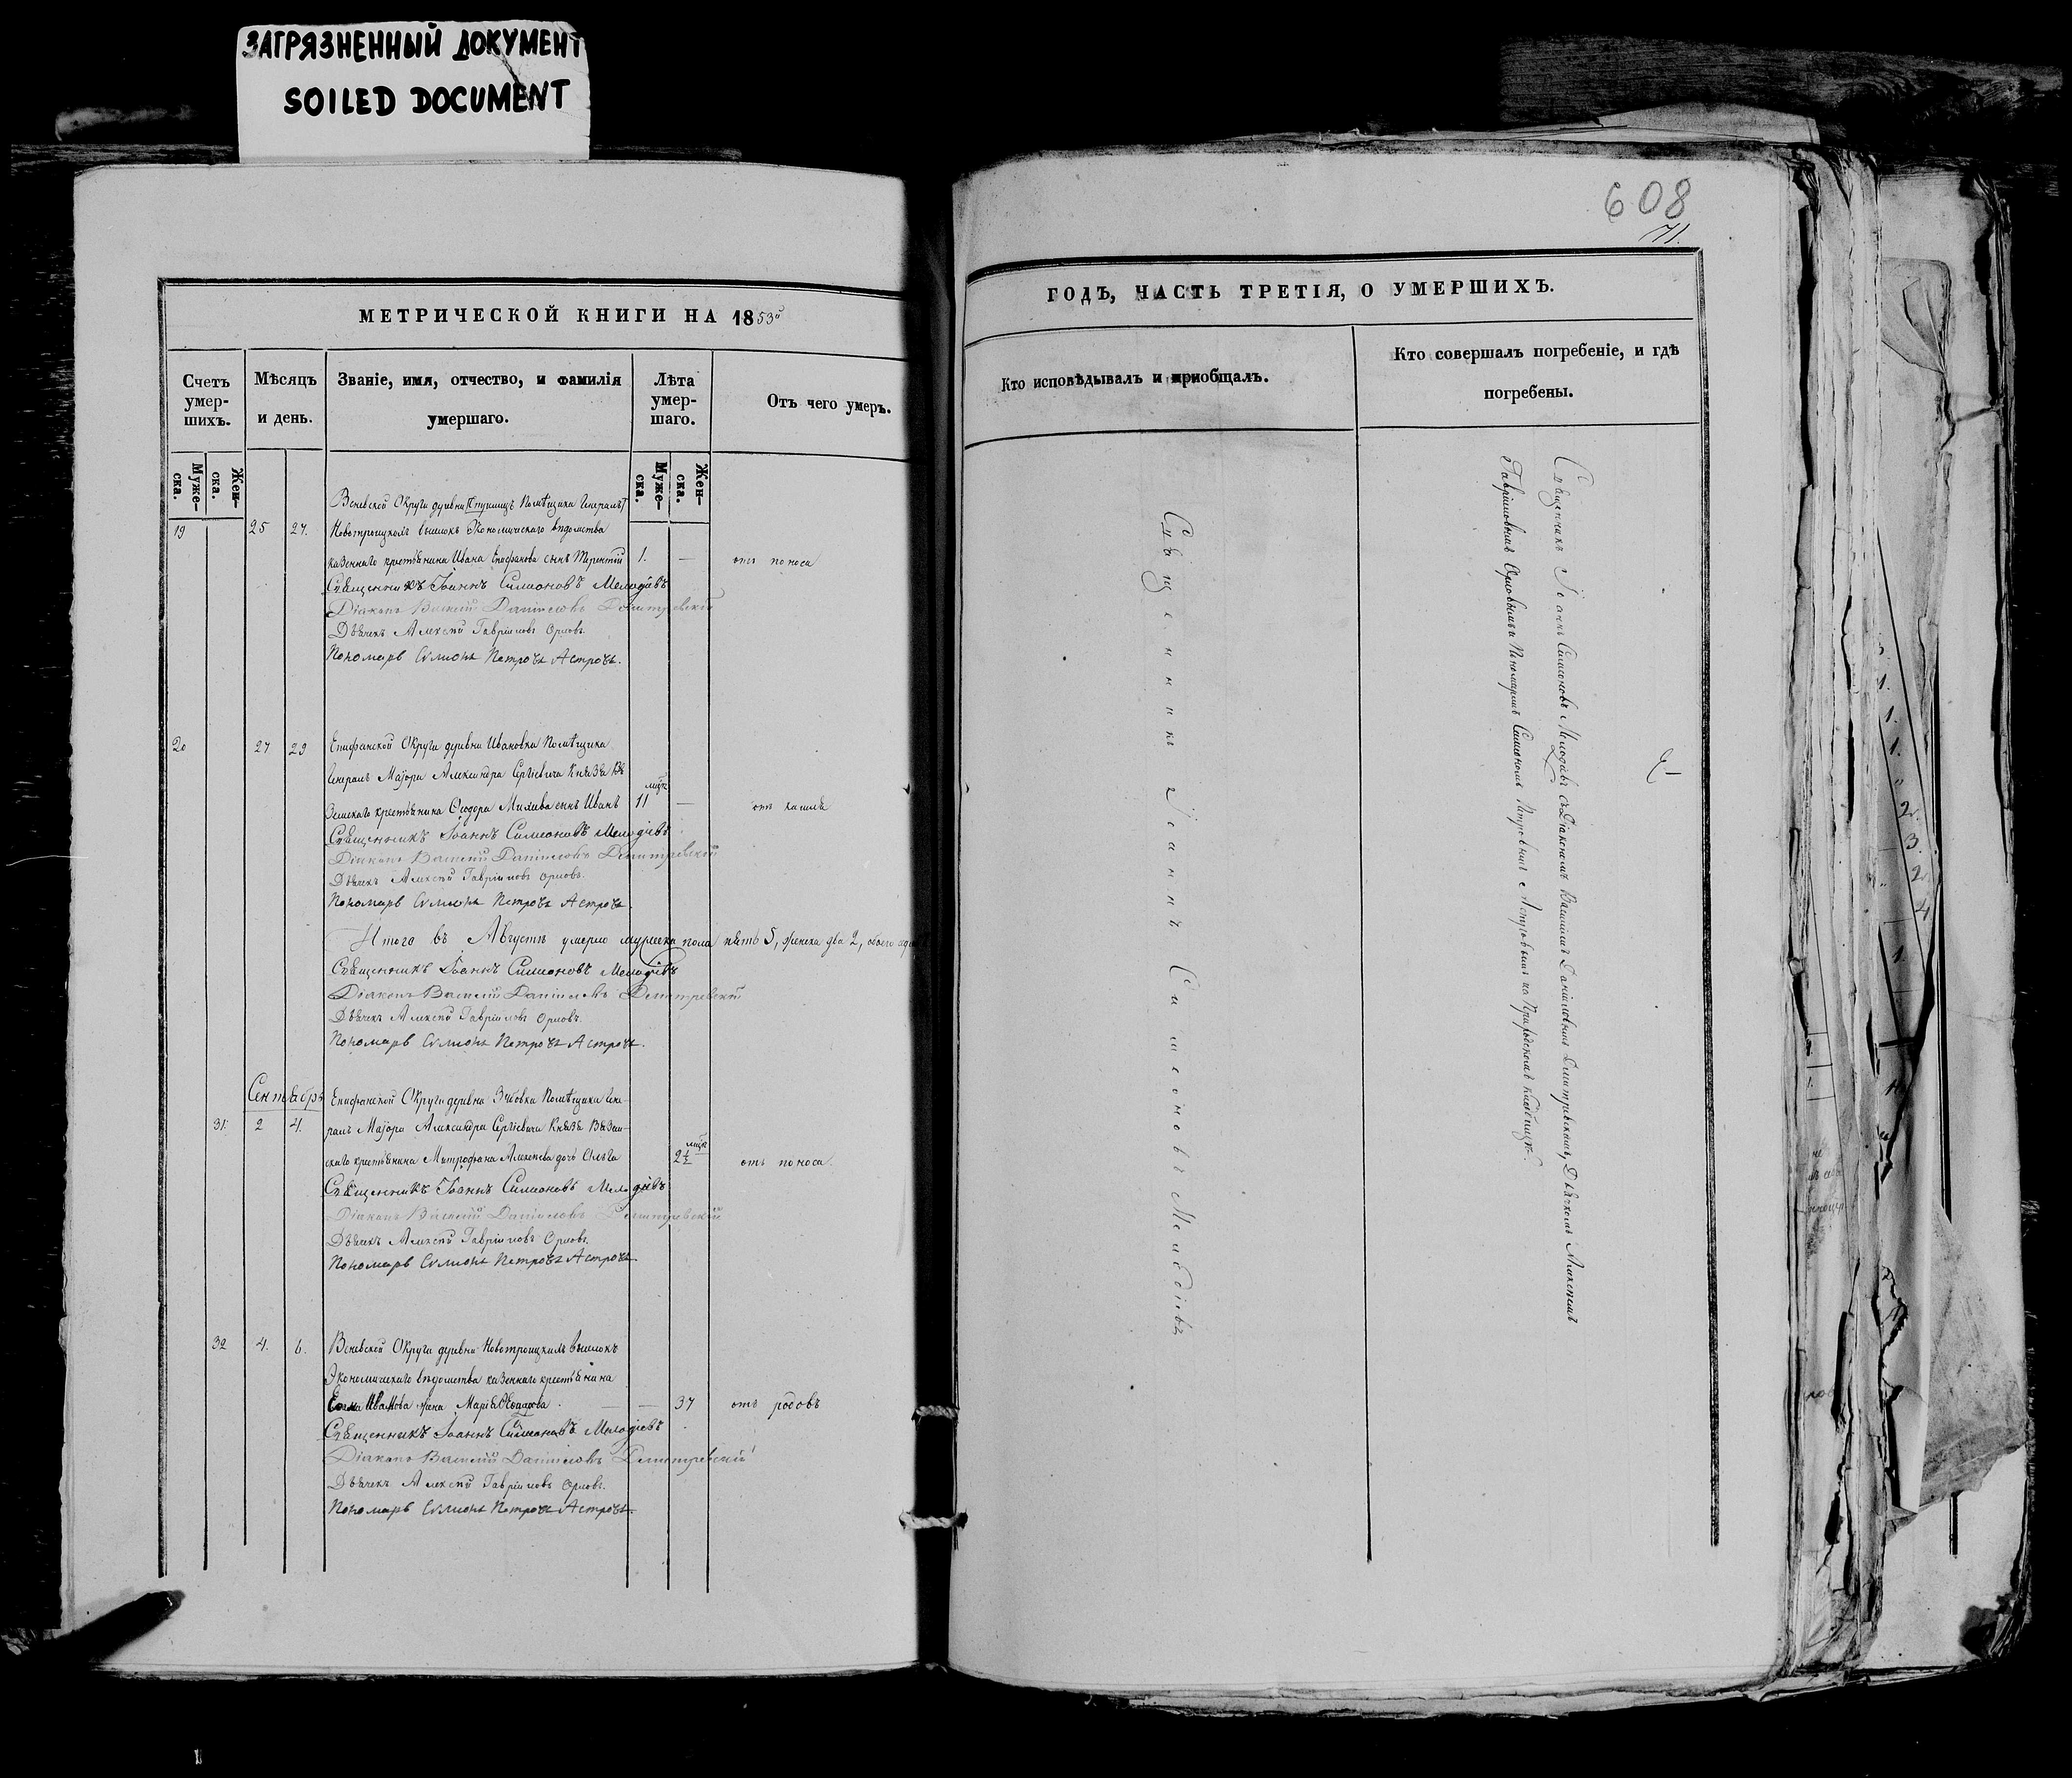 ЗАГРЯЗНЕННЫЙ ДОКУМЕНТ
SOILED DOCUMENT
608
71.
МЕТРИЧЕСКОЙ КНИГИ НА 1853й
ГОДЪ, ЧАСТЬ ТРЕТІЯ, О УМЕРШИХЪ.
Счетъ умер-шихъ.
Муже-ска.
Жен-ска.
Мѣсяцъ и день.
Званіе, имя, отчество, и фамилія умершаго.
Лѣта умер-шаго.
Муже-ска.
Жен-ска.
Отъ чего умеръ.
Кто исповѣдывалъ и пріобщалъ.
Кто совершалъ погребеніе, и гдѣ погребены.
Веневской Округи деревни Помѣщика Генералъ
19 25 27. Новотроицкомъ выселокъ Экономическаго вѣдомства
казеннаго крестьянина Ивана Епифанова сынъ Терентій 1. — отъ поноса
Священникъ Іоаннъ Симеоновъ Мелодіевъ
Діаконъ Василій Даніиловъ Димитревскій
Дьячекъ Алексѣй Гавріиловъ Орловъ.
Пономарь Симіонъ Петровъ Астровъ.
20 27 29 Епифанской Округи деревни Ивановки Помѣщика
Генералъ Маіора Александра Сергѣевича Князя Вя
земскаго крестьянина Ѳедора сынъ Иванъ 11 — отъ кашля
Священникъ Іоаннъ Симеоновъ Мелодіевъ
Діаконъ Василій Даніиловъ Димитревскій
Дьячекъ Алексѣй Гавріиловъ Орловъ.
Пономарь Симіонъ Петровъ Астровъ.
Итого въ Августѣ умерло мужеска пола пять 5, женска два 2, обоего
Священникъ Іоаннъ Симеоновъ Мелодіевъ
Діаконъ Василій Даніиловъ Димитревскій
Дьячекъ Алексѣй Гавріиловъ Орловъ.
Пономарь Симіонъ Петровъ Астровъ.
Сентябрь Епифанской Округи деревни Помѣщика Гене-
31. 2 4. ралъ Маіора Александра Сергѣевича Князя Вязем-
скаго крестьянина Митрофана Алексѣева дочь Ольга 2½ отъ поноса.
Священникъ Іоаннъ Симеоновъ Мелодіевъ
Діаконъ Василій Даніиловъ Димитревскій
Дьячекъ Алексѣй Гавріиловъ Орловъ.
Пономарь Симіонъ Петровъ Астровъ.
32 4. 6. Веневской Округи деревни Новотроицкихъ выселокъ
Экономическаго вѣдомства казеннаго крестьянина
Иванова жена Марія — — 37 отъ родовъ
Священникъ Іоаннъ Симеоновъ Мелодіевъ
Діаконъ Василій Даніиловъ Димитревскій
Дьячекъ Алексѣй Гавріиловъ Орловъ.
Пономарь Симіонъ Петровъ Астровъ.
Священникъ Іоаннъ Симеоновъ Мелодіевъ
Священникъ Іоаннъ Симеоновъ Мелодіевъ съ Діакономъ Василіемъ Даніиловымъ Димитревскимъ, Дьячкомъ Алексѣемъ
Гавріиловымъ Орловымъ и Пономаремъ Симіономъ Петровымъ Астровымъ на Приходскомъ кладбищѣ.